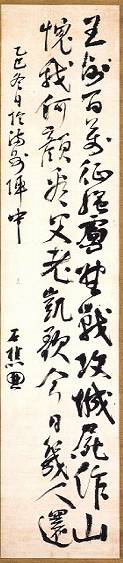 王師百萬征強虜埜戰攻城屍作山
愧我何顔看父老凱歌今日幾人還
乙巳冬日於法庫陣中
石樵典